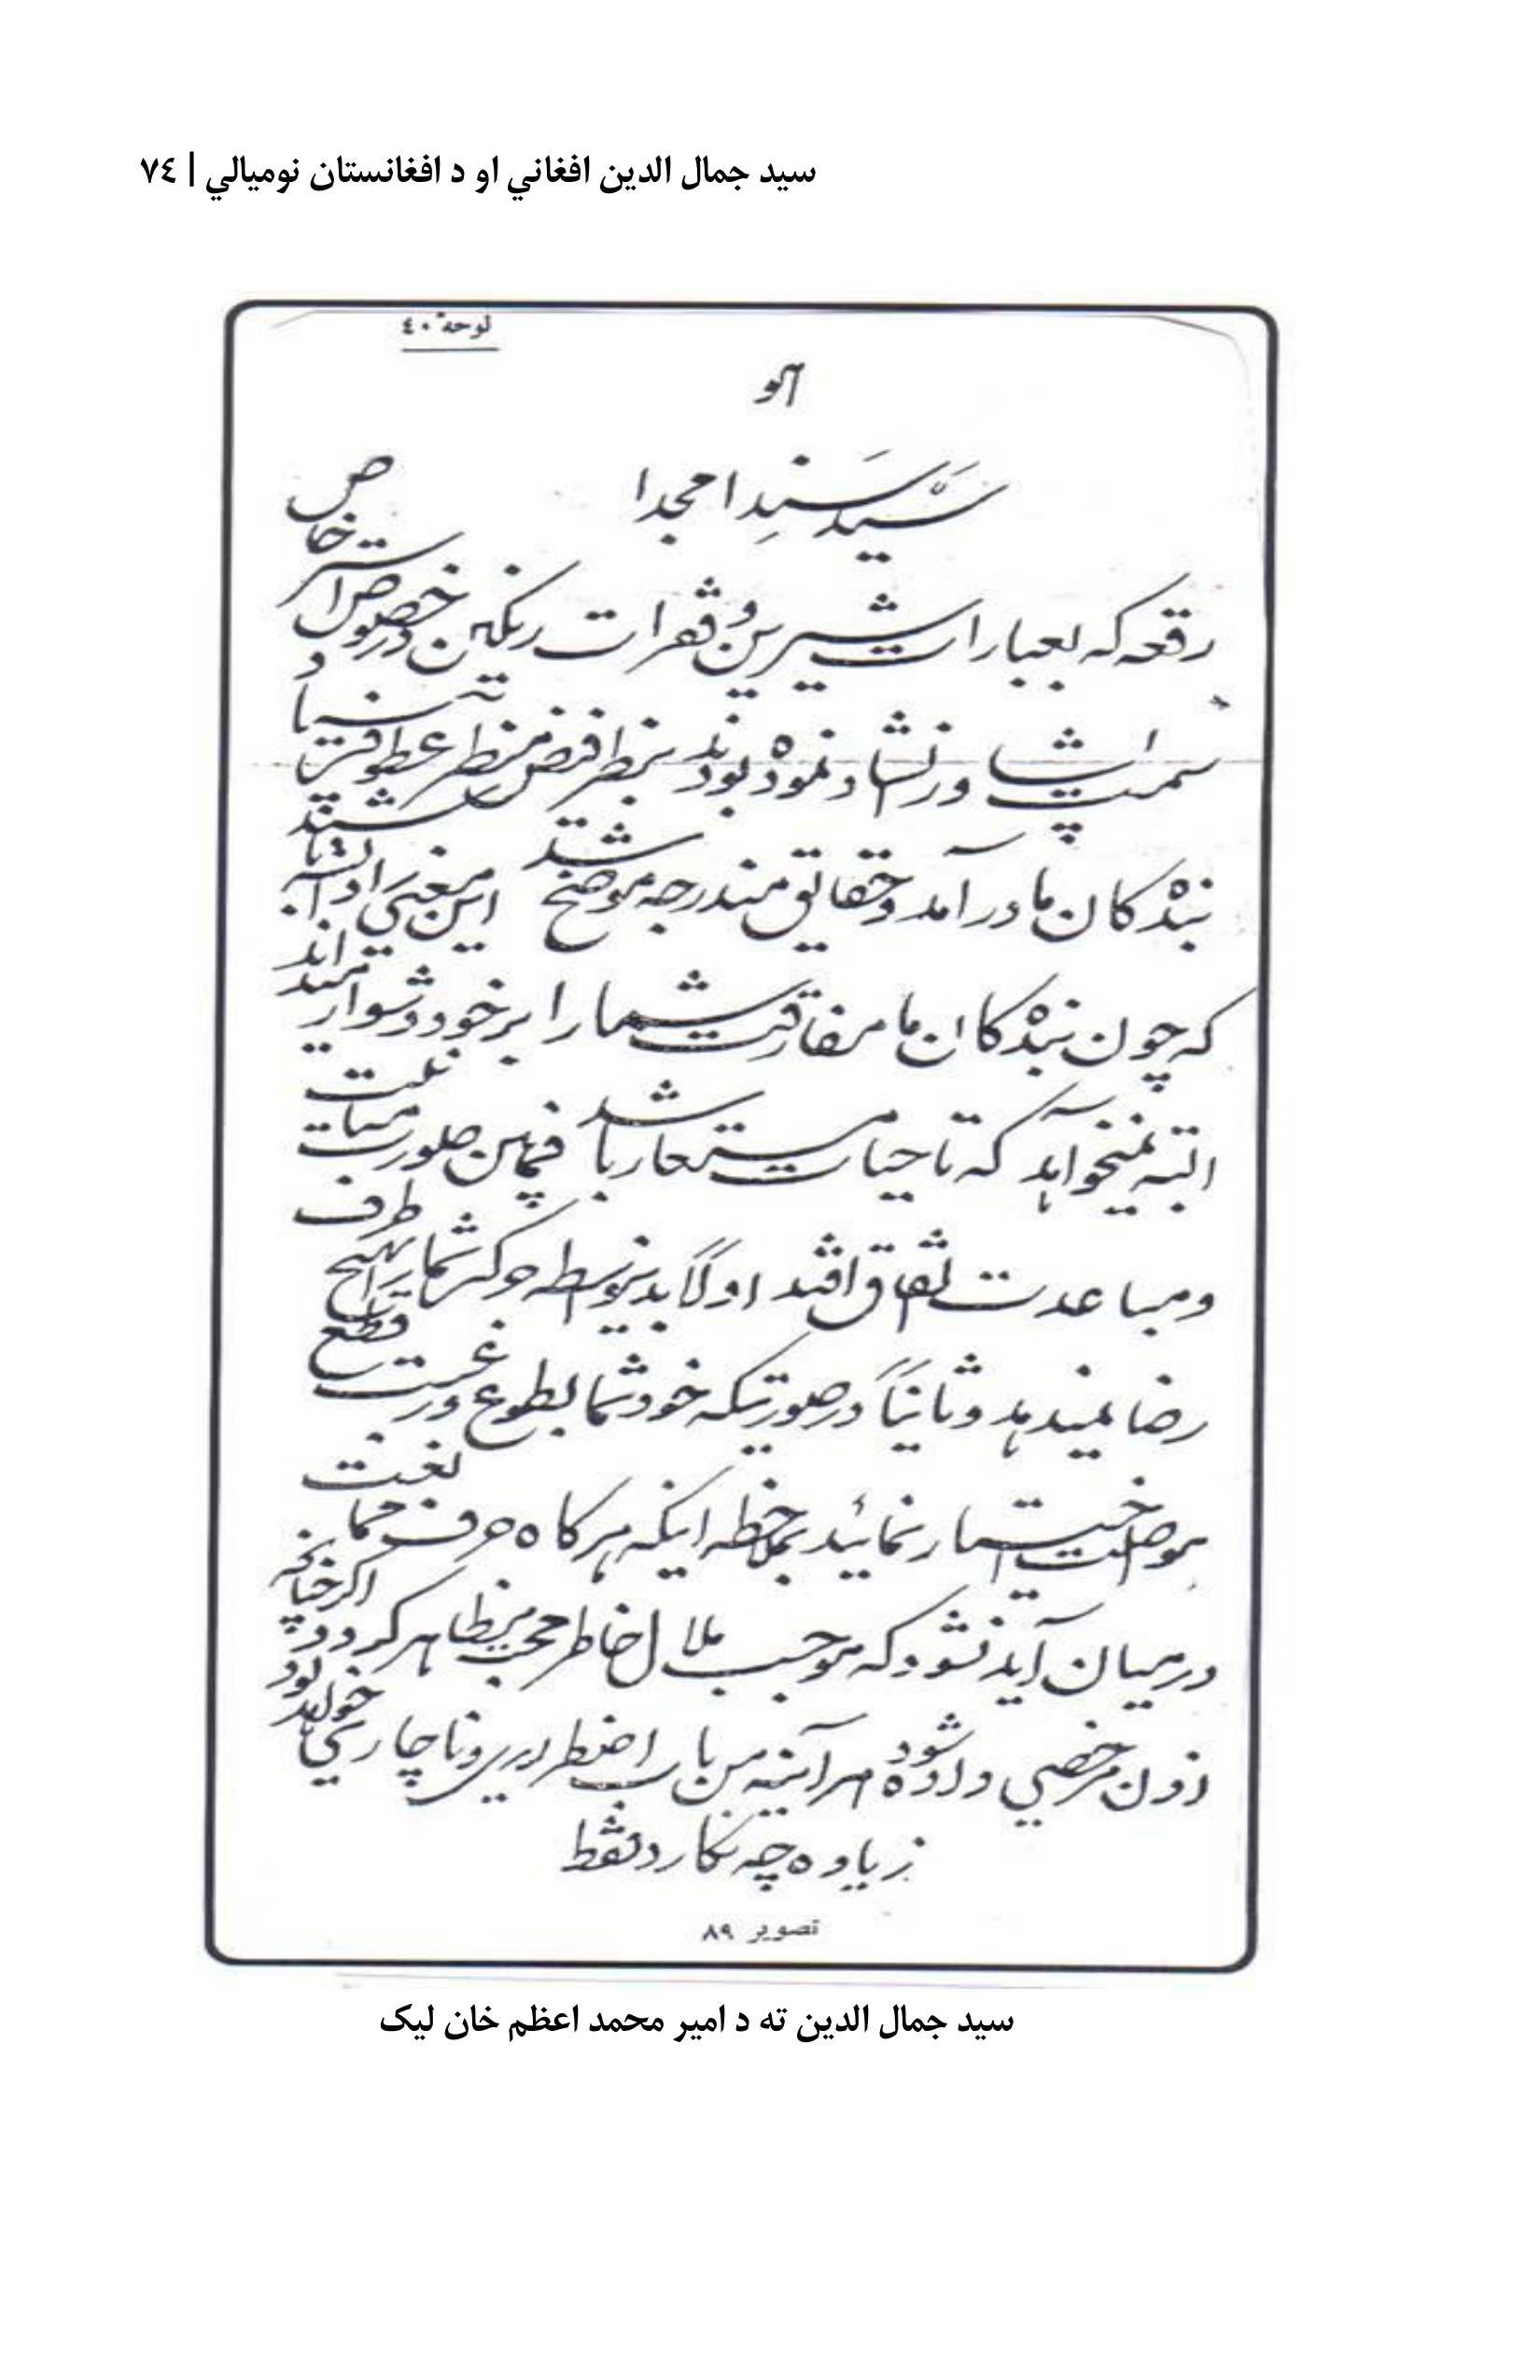 سيد جمال الدين افغاني او د افغانستان نوميالي | ٧٤
لوحهٔ ٤٠
سَیّد سَنِد امجدا
رقعه که بعبارات شیرین و فقرات رنگین در خصوص استرخاص
سمت پشاور انشاد نموده بودند بنظر فیض منظر عطوفت
بنده کان ما در آمد و حقایق مندرجه موضح شد این معنی را
که چون بنده کان ما مفارقت شما را بر خود دشوار میداند
البته نمیخواهد که تا حیات مستعار باشد فیمابین صورت
ومباعدت اتفاق افتد اولًا بدین توسطه حرکت شما را بهیچ طرف
رضا نمیدهد و ثانیاً در صورتیکه خود شما بطوع و رغبت قطع
مواصلت اختیار نمائید بملاحظه اینکه هرگاه حرف ممانعت
در میان آید نشود که موجب ملال خاطر محبت مظاهر گردد چنانچه اگر
اذن مرخصی داده شود هر آئینه من باب اضطراری و ناچاری خواهد بود
زیاده چه نگارد فقط
تصویر ٨٩
سيد جمال الدين ته د امير محمد اعظم خان ليک